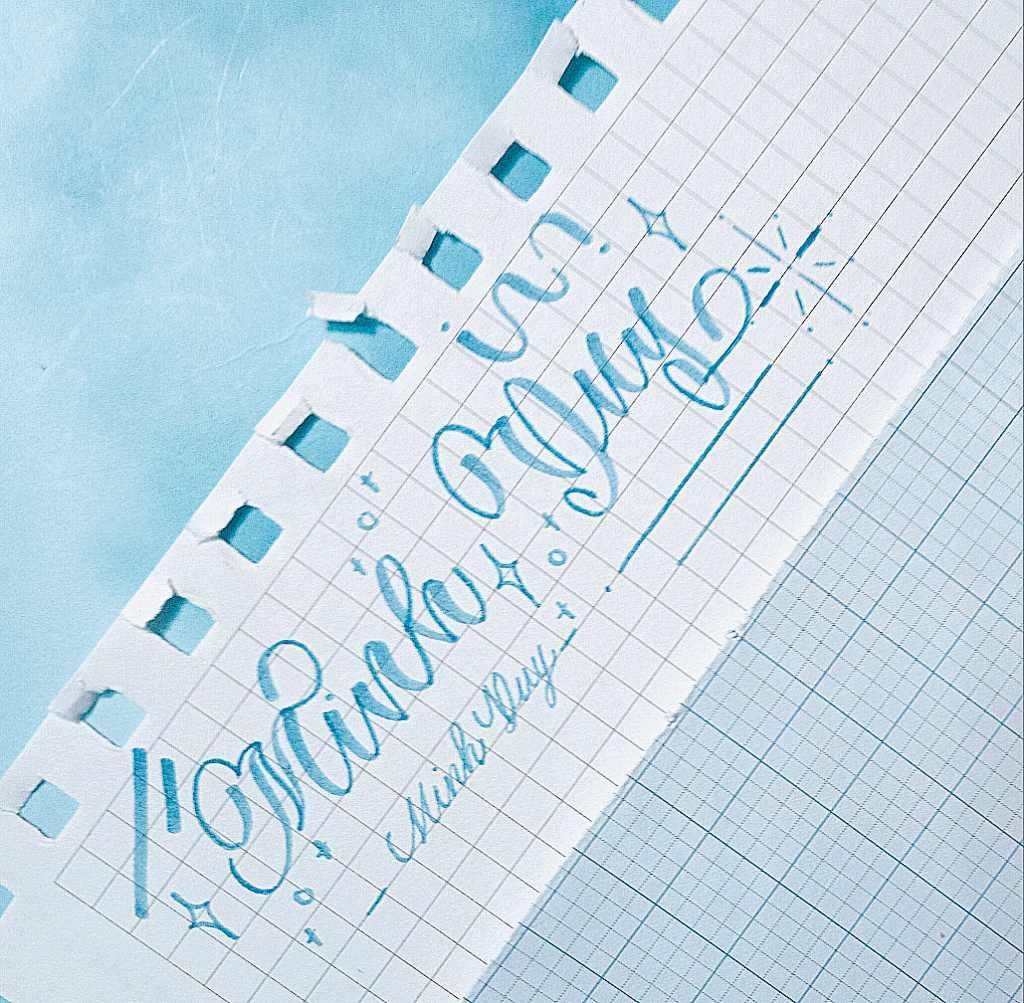 Minh Duy
Minh Duy